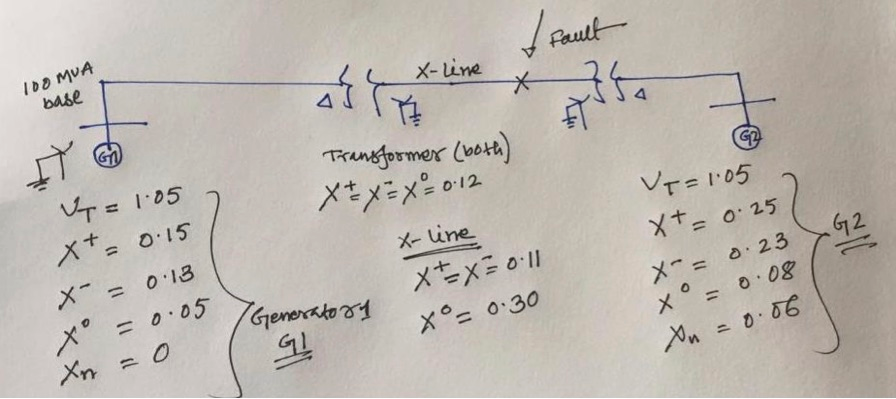 Fault
100 MVA
base
X-Line
Δ
Δ
G1
G2
Transformer (both)
X⁺= X⁻= X⁰= 0.12
X-line
X⁺= X⁻= 0.11
X⁰= 0.30
V_T = 1.05
X⁺ = 0.15
X⁻ = 0.13
X⁰ = 0.05
X_n = 0
Generator 1
G1
V_T = 1.05
X⁺ = 0.25
X⁻ = 0.23
X⁰ = 0.08
X_n = 0.06
G2